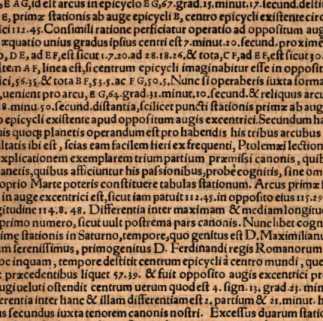 E A G, id est arcus in epicyclo E G, 67. grad. 15. minut. 17. secund. delti
e, primæ stationis ab auge epicycli B, centro epicycli existente circ
ci 112.45. Consimili ratione perficiatur operatio ad oppositum aug
æquatio unius gradus ipsius centri est 7. minut. 10. secund. proxime
O, D E, ad E F, est sicut 1.7.20. ad 18.18.16, & tota, C F, ad E F, est sicut 30.
iten A F, linea est, si centrum epicycli imaginabitur esse in opposit
ici, 56.35. & tota E F, 55.51. ac F G, 50.5. Nunc si operaberis iuxta formam
uenient pro arcu, E G, 64. grad. 31. minut. 10. secund. & reliquus arcu
8. minu. 50. secund. distantia, scilicet puncti stationis primæ ab aug
o epicycli existente apud oppositum augis excentrici. Secundum ha
uis quoq; planetis operandum est pro habendis his tribus arcubus
ultatis ibi est, scias eam facilem fieri ex frequenti, Ptolemæi lection
explicationem exemplarem trium partium præmissi canonis, quib
planetis, quibus afficiuntur his passionibus, probe cognitis, sine om
roprio Marte poteris constituere tabulas stationum. Arcus primæ
in auge excentrici est, sicut iam patuit 112.45. in opposito eius 115.29
gitudine 114. 8. 48. Differentia inter maximam & mediam longitud
primo numero, sicut uult postrema pars canonis. Nunc libet cogn
ime stationis in Saturno, tempore, quo genitus est D. Maximilian
um serenissimus, primogenitus D. Ferdinandi regis Romanorum
oc inquam, tempore destitit centrum epicycli à centro mundi, que
x præcedentibus liquet 57.39. & fuit opposito augis excentrici pr
ugi ueluti ostendit centrum uerum quod est 4. sign. 13. grad. 23. min
erentia inter hanc & illam differentiam est 2. partium & 21. minut. h
us secundus iuxta tenorem canonis nostri. Excessus duarum statio